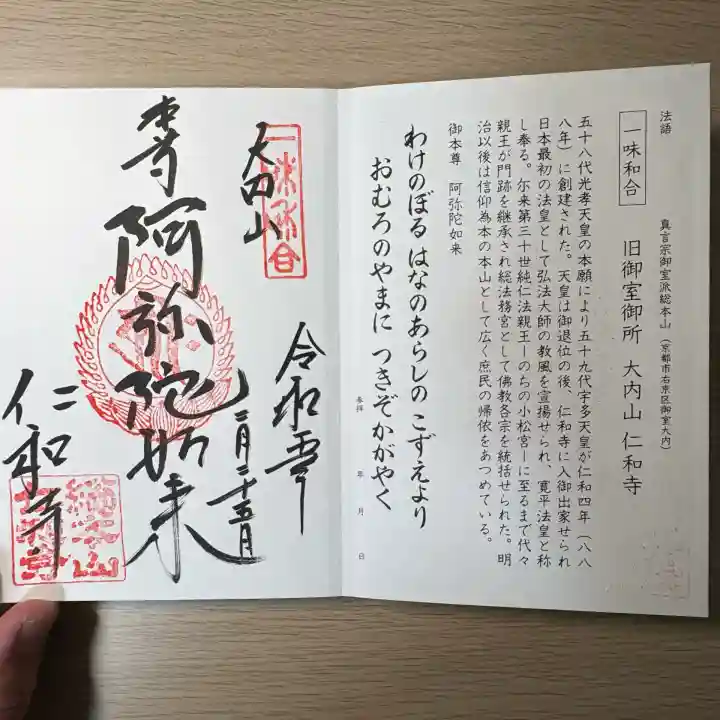 法語
一味和合
真言宗御室派総本山 (京都市右京区御室大内)
旧御室御所 大内山 仁和寺
五十八代光孝天皇の本願により五十九代宇多天皇が仁和四年(八八
八年)に創建された。天皇は御退位の後、仁和寺に入御出家せられ
日本最初の法皇として弘法大師の教風を宣揚せられ、寛平法皇と称
し奉る。尓来第三十世純仁法親王ーのちの小松宮ーに至るまで代々
親王が門跡を継承され総法務宮として佛教各宗を統括せられた。明
治以後は信仰為本の本山として広く庶民の帰依をあつめている。
御本尊 阿弥陀如来
わけのぼる はなのあらしの こずえより
おむろのやまに つきぞかがやく
参拝 年 月 日
一味和合
大内山
阿弥陀如来
二月二十五日
仁和寺